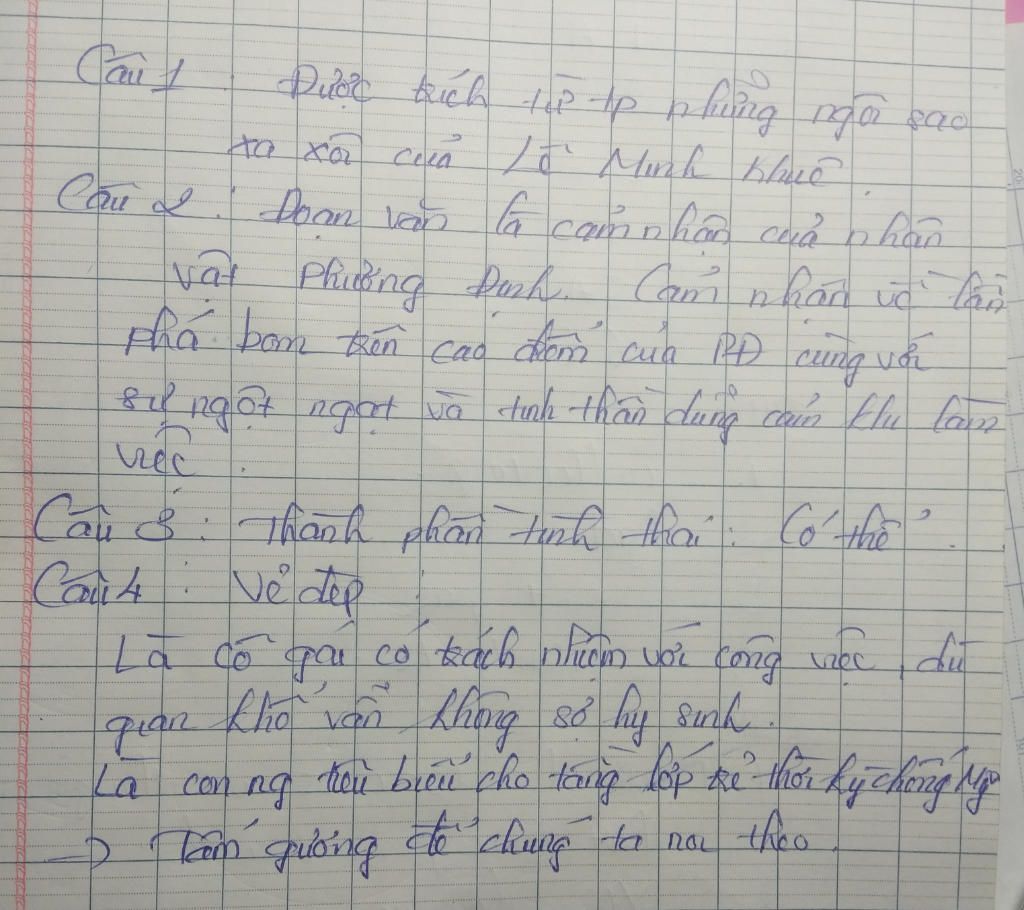 Câu 1 : Được trích từ tp những ngôi sao
xa xôi của Lê Minh Khuê.
Câu 2 : Đoạn văn là cảm nhận của nhân
vật Phương Định. Cảm nhận về lần
phá bom trên cao điểm của PĐ cùng với
sự ngột ngạt và tinh thần dũng cảm khi làm
việc.
Câu 3 : Thành phần tình thái : Có thể.
Câu 4 : Vẻ đẹp :
Là cô gái có trách nhiệm với công việc, dù
gian khổ vẫn không sợ hy sinh.
Là con ng tiêu biểu cho tầng lớp trẻ thời kỳ chống Mỹ
→ Tấm gương để chúng ta noi theo.